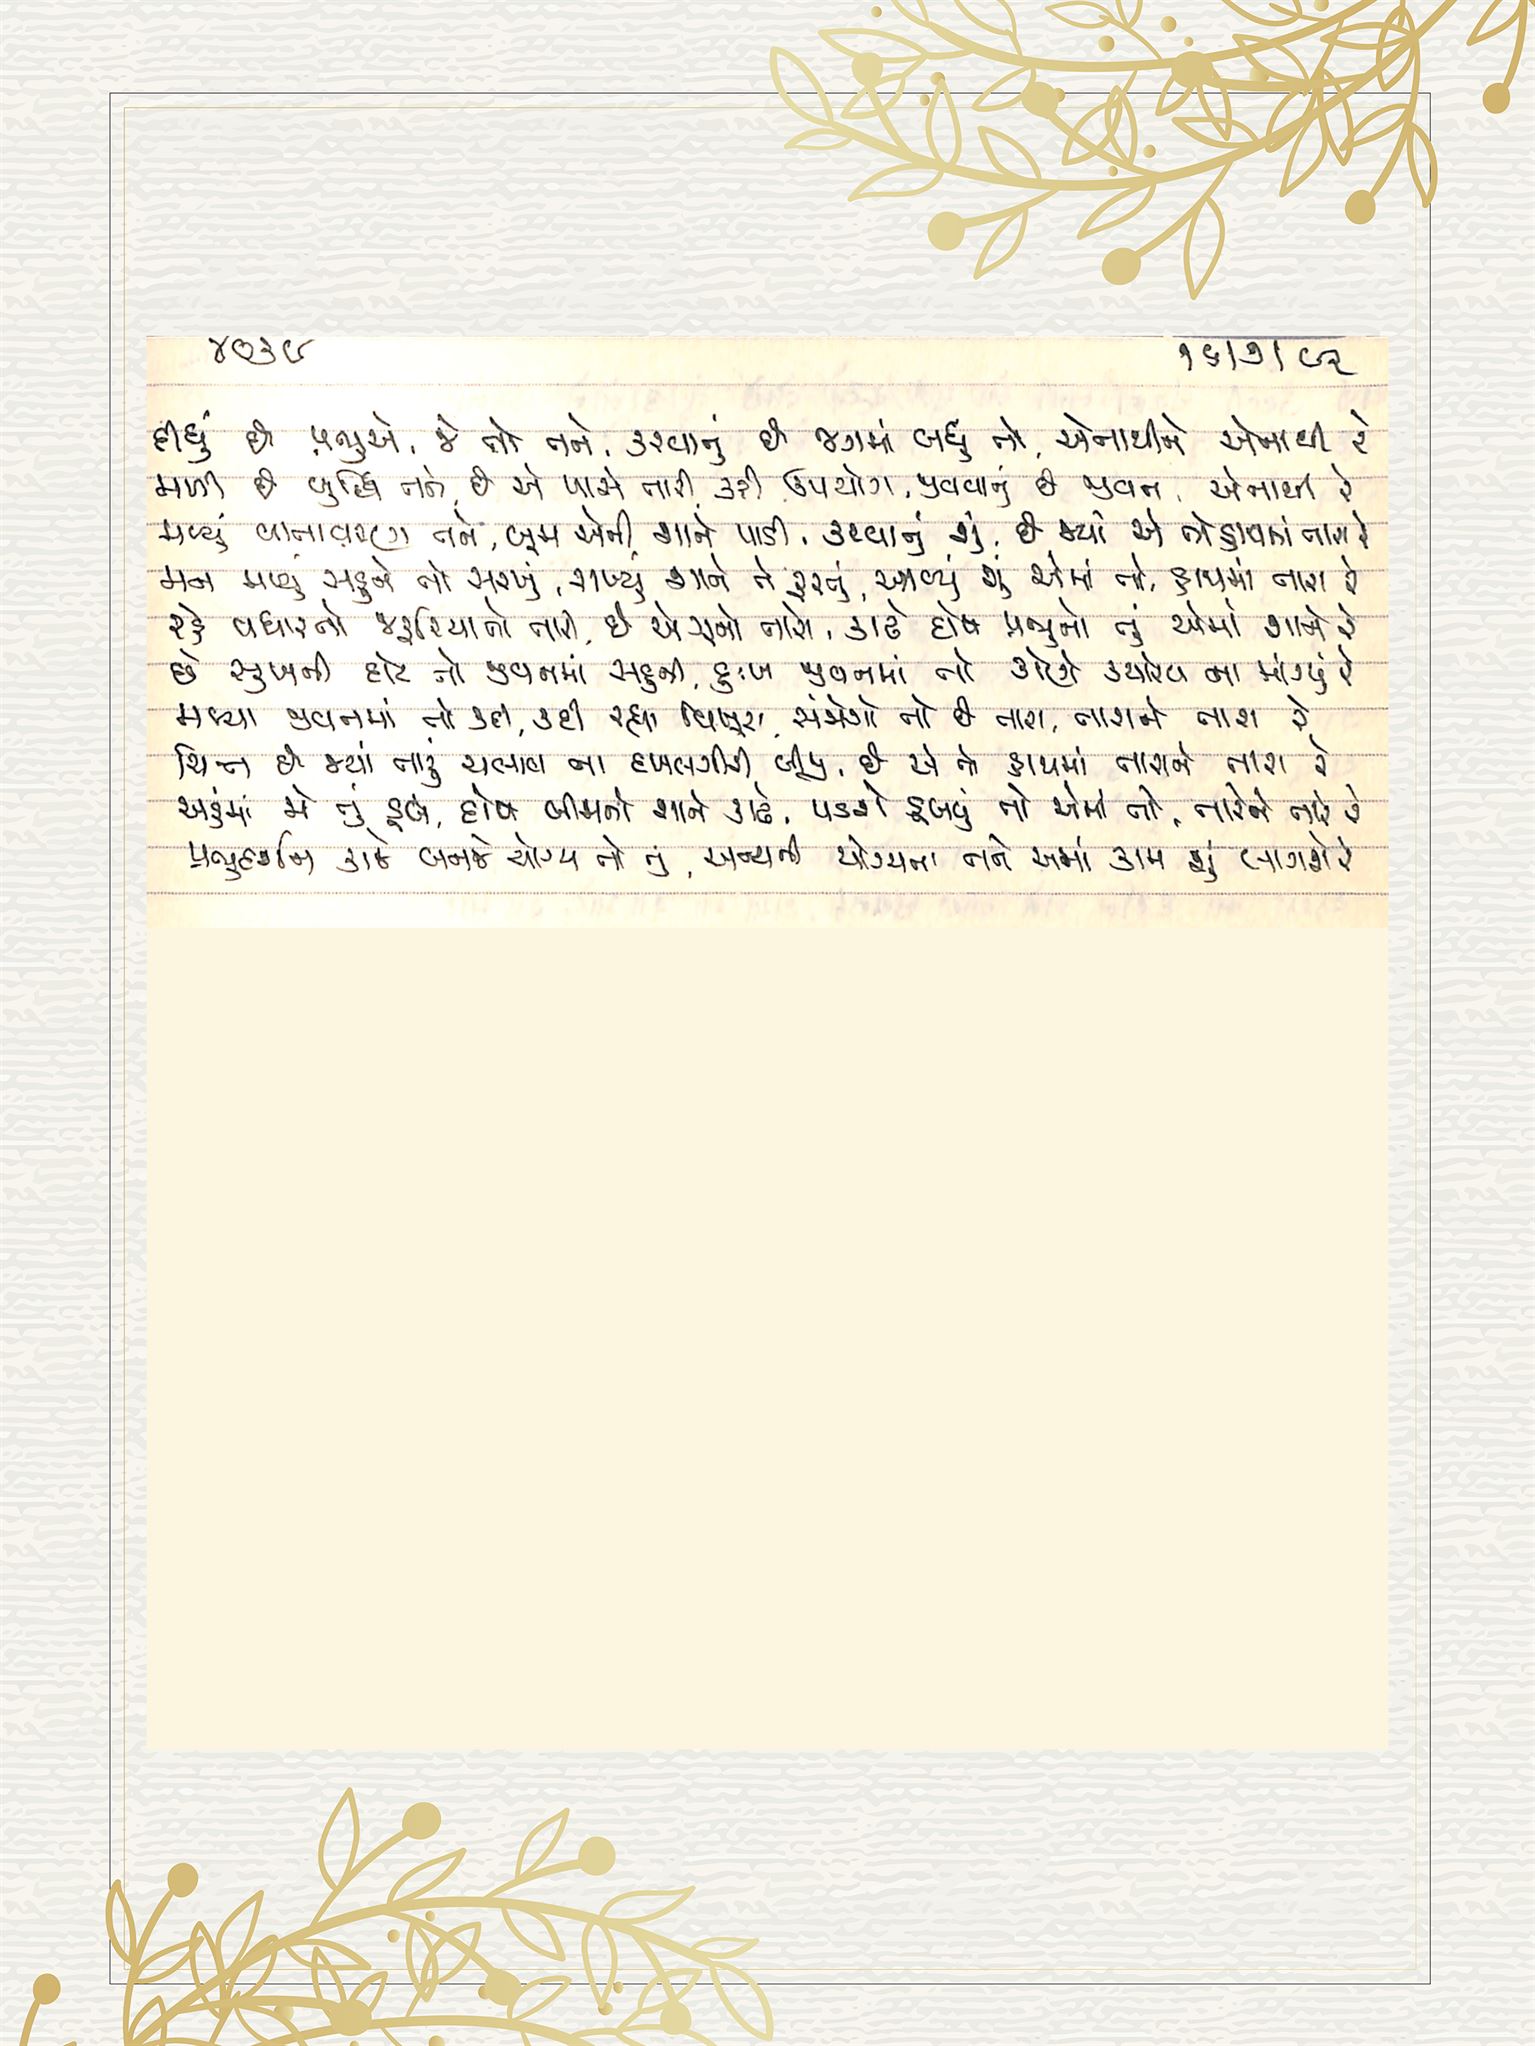 ૪૭૩૯ ૧૬/૭/૯૨
દીધું છે પ્રભુએ, જે તો તને, કરવાનું છે જગમાં બધું તો, એનાથીને એનાથી રે
મળી છે બુદ્ધિ તને, છે એ પાસે તારી, કરી ઉપયોગ, જીવવાનું છે જીવન, એનાથી રે
મળ્યું વાતાવરણ તને, બૂમ એની શાને પાડી, કરવાનું શું, છે ક્યાં એ તો હાથમાં તારા રે
મન મળ્યું સહુને તો સરખું, રાખ્યું શાને તે ફરતું, આવ્યું શું એમાં તો, હાથમાં તારા રે
રહે વધારતો જરૂરિયાતો તારી, છે એ ગુનો તારો, કાઢે દોષ પ્રભુનો તું એમાં શાને રે
છે સુખની દોટ તો જીવનમાં સહુની, દુઃખ જીવનમાં તો કોણે ક્યારેય ના માંગ્યું રે
મળ્યા જીવનમાં તો કદી, કદી રહ્યા વિખૂટા, સંજોગો તો છે તારા, તારાને તારા રે
ચિત્ત છે ક્યાં તારું ચલાવ ના દખલગીરી બીજી, છે એ તો હાથમાં તારાને તારા રે
અહંમાં જો તું ડૂબે, દોષ બીજાનો શાને કાઢે, પડશે ડૂબવું તો એમાં તો, તારેને તારે રે
પ્રભુદર્શન કાજે બનજે યોગ્ય તો તું, અન્યની યોગ્યતા તને એમાં કામ શું લાગશે રે